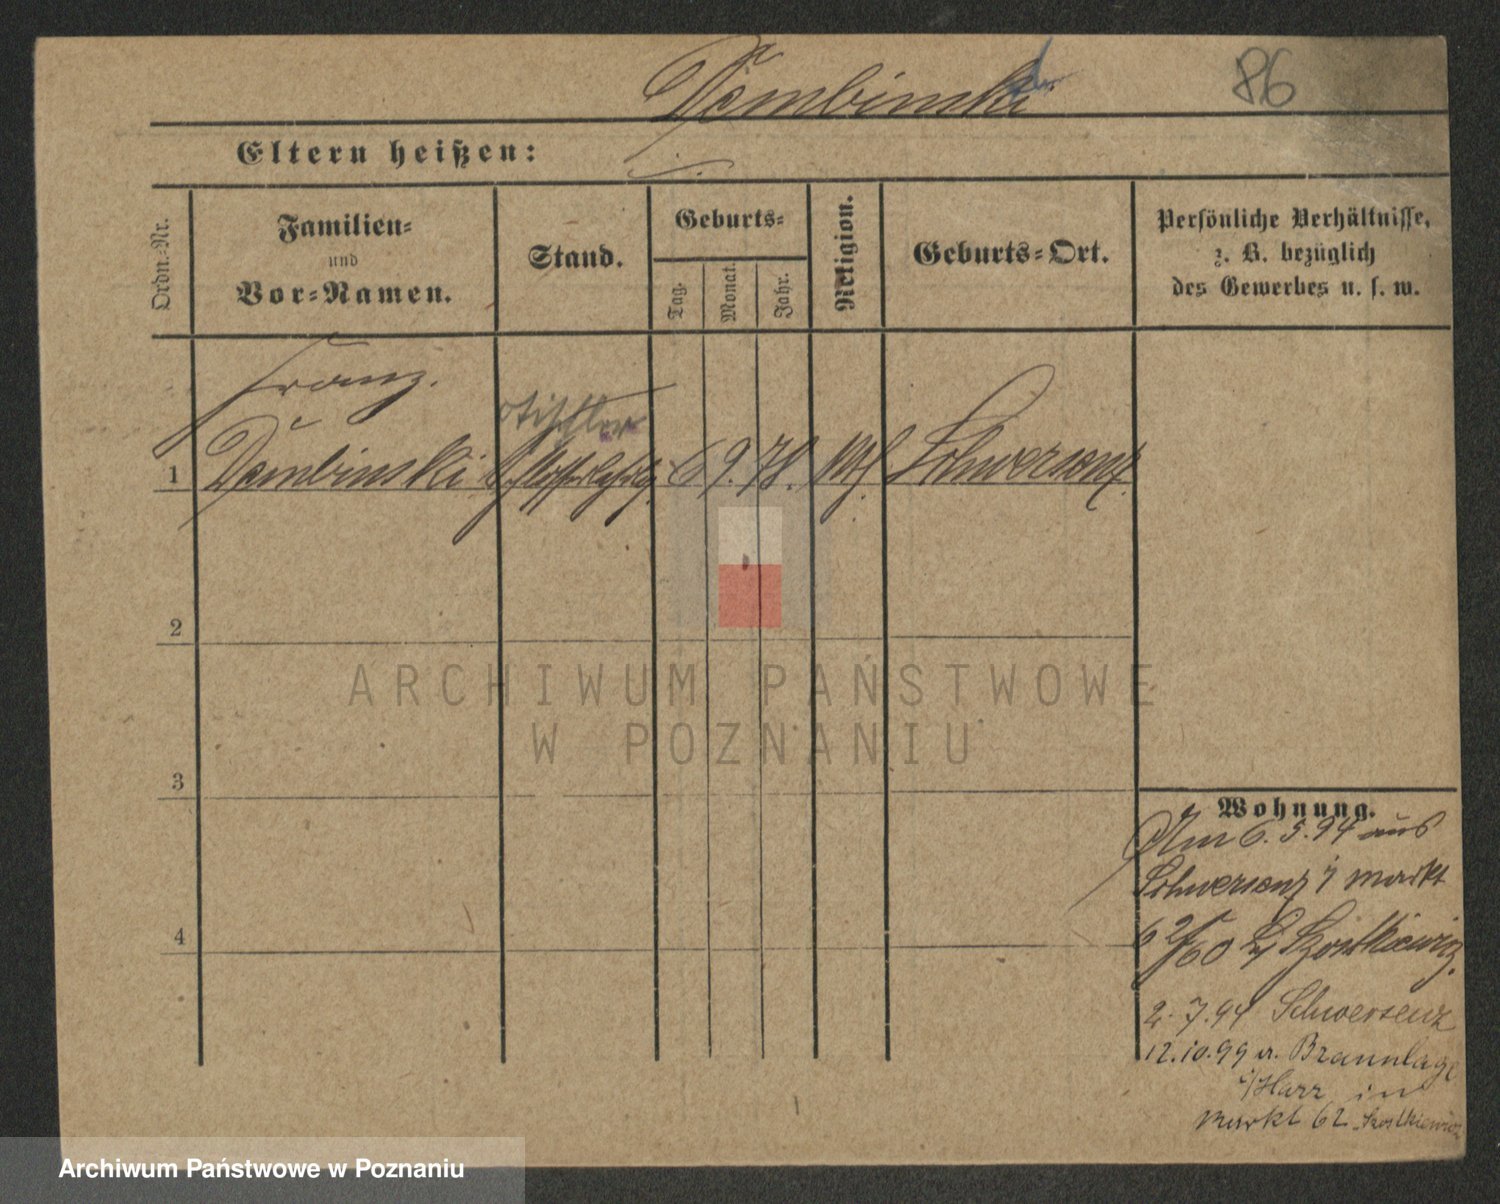 Dembinski
86
Eltern heißen:
Ordn.-Nr.
Familien-
und
Vor-Namen.
Stand.
Geburts-
Tag.
Monat.
Jahr.
Religion.
Geburts-Ort.
Persönliche Verhältnisse,
z. B. bezüglich
des Gewerbes u. s. w.
Franz.
Tischler
1 Dembinski 6 9. 78. Schwersenz
2
3
4
ARCHIWUM PAŃSTWOWE
W POZNANIU
Wohnung.
Am 6. 5. 94 aus
Schwersenz markt
Szostkiewicz.
2. 7. 94 Schwersenz
12.10.99 a. Braunlage
i/Harz in
Markt 62 Szostkiewicz
Archiwum Państwowe w Poznaniu